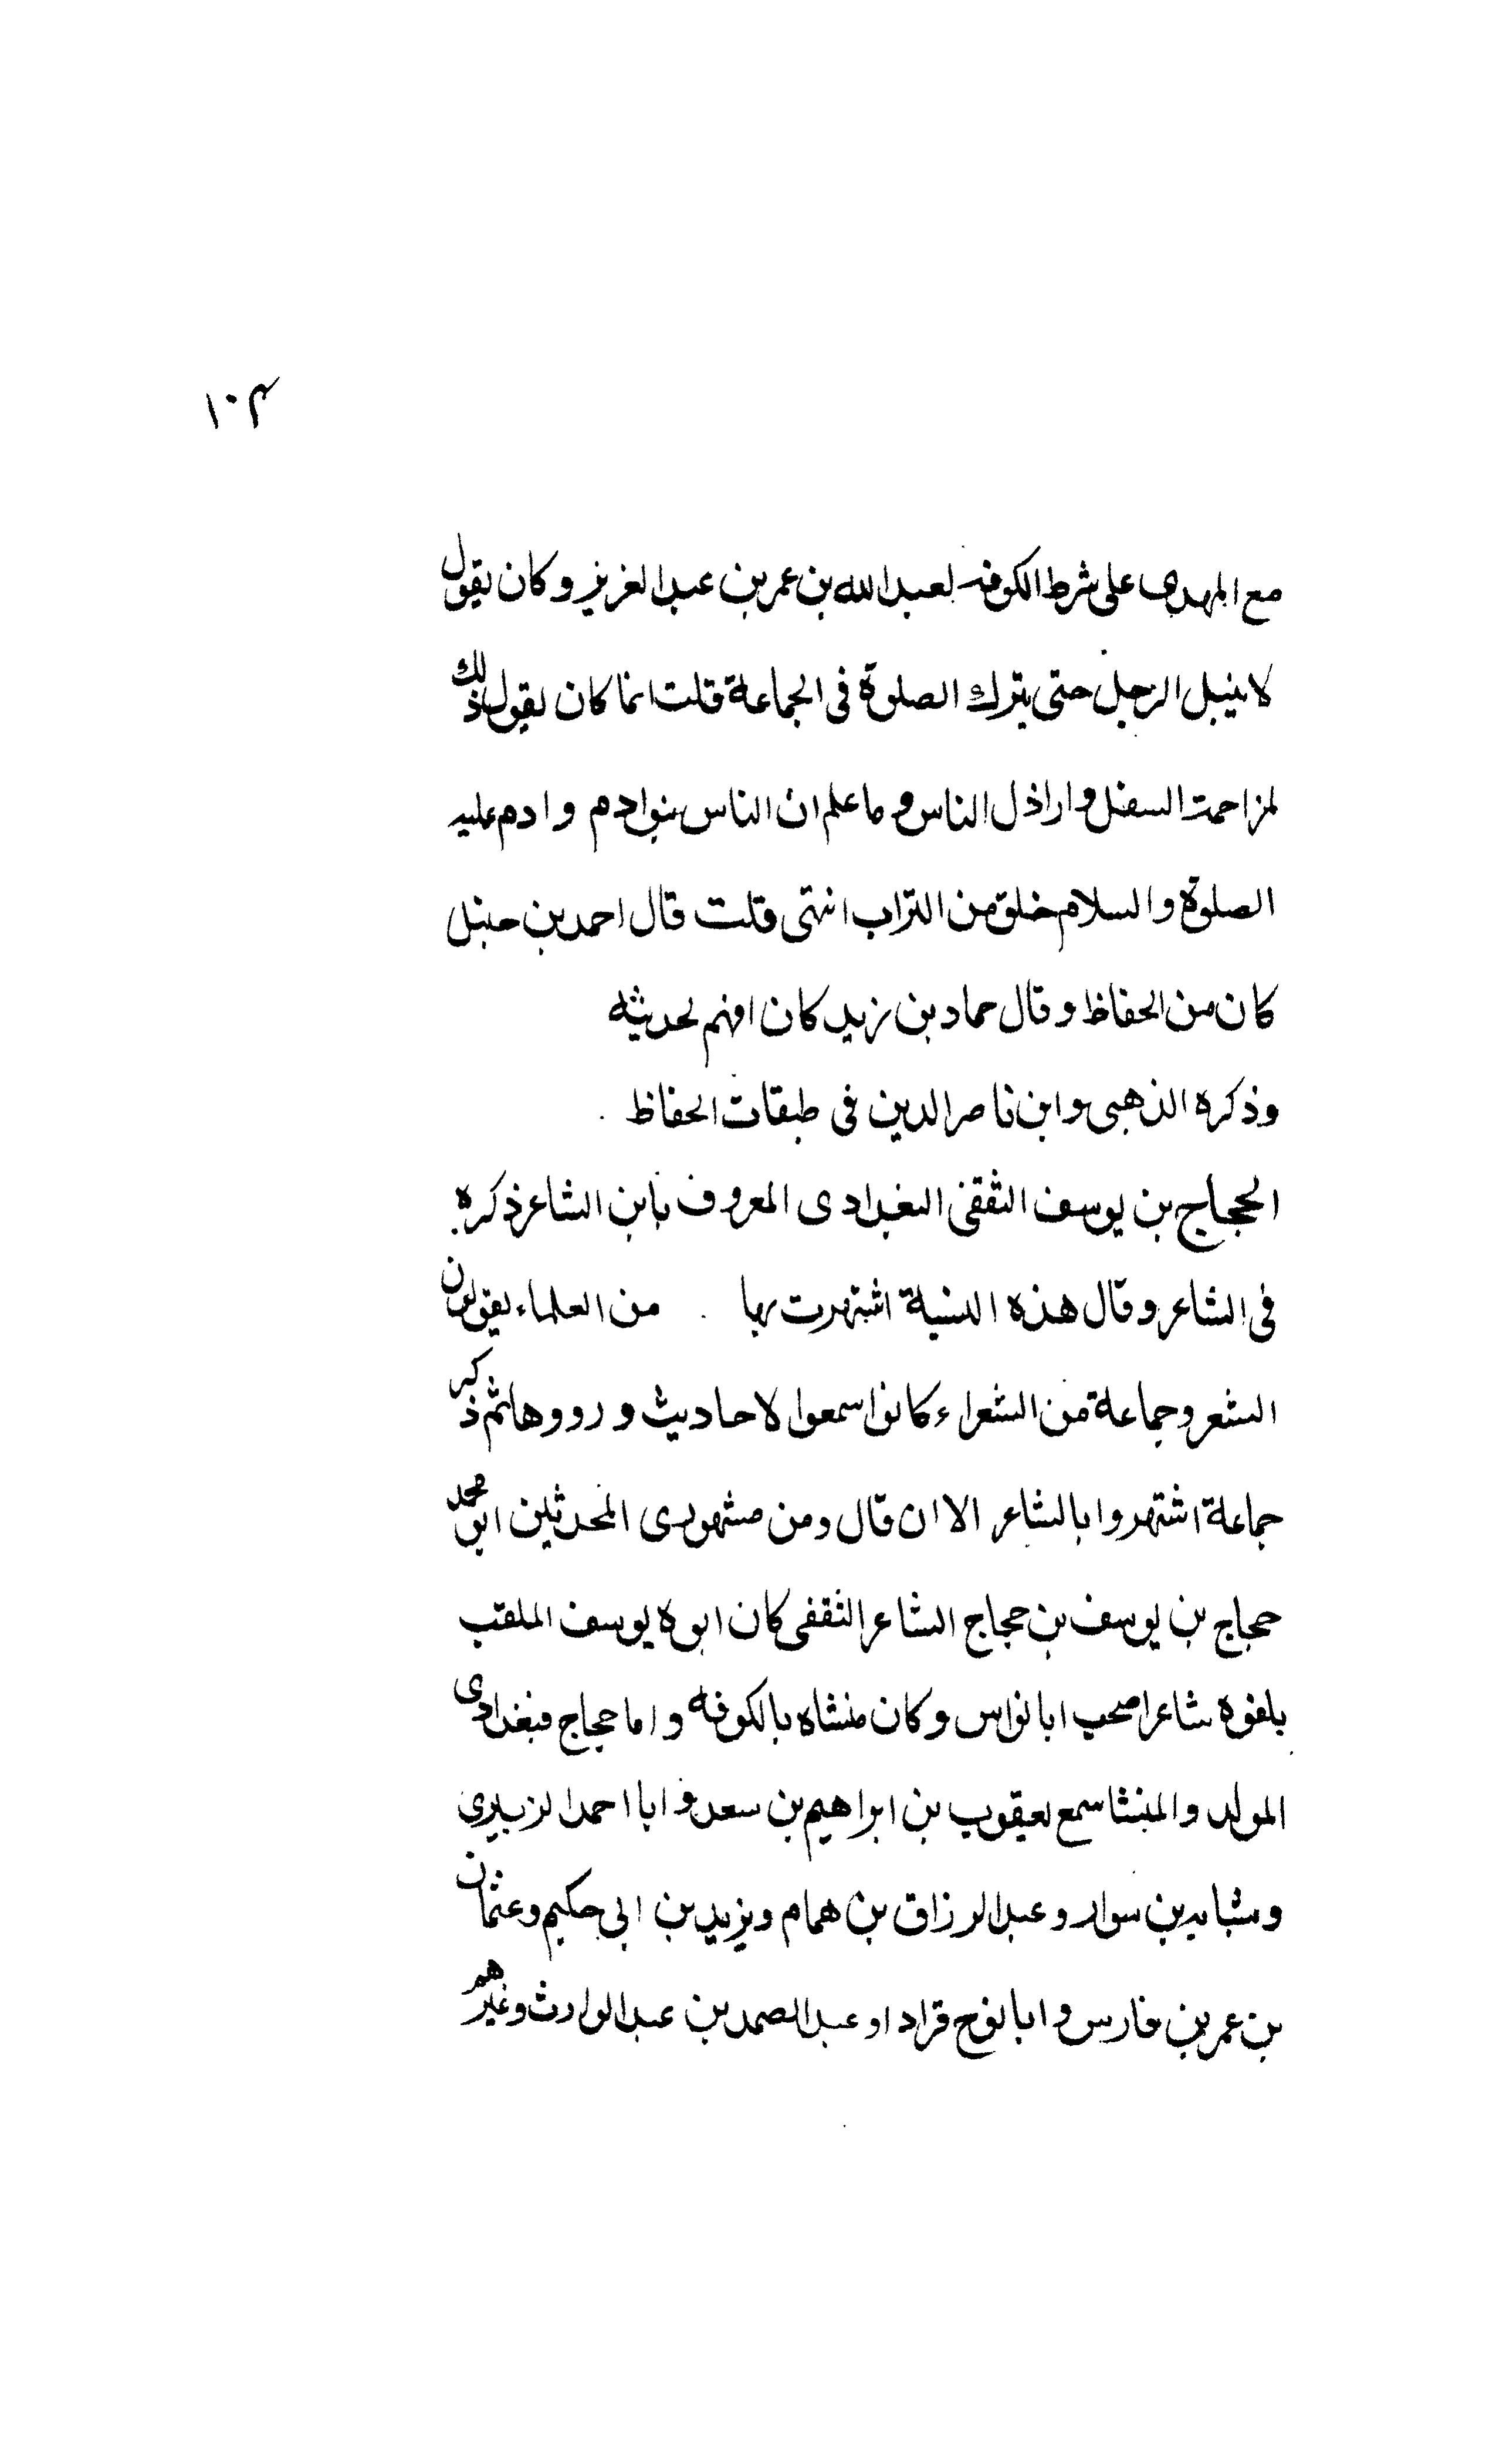 ١٠٣
مع المهدى على شرط الكوفه لعبد الله بن عمر بن عبد العزيز وكان يقول
لا ينبل الرجل حتى يترك الصلوة فى الجماعة قلت انما كان يقول ذلك
لمزاحمة السفل واراذل الناس وما علم ان الناس بنو ادم وادم عليه
الصلوة والسلام خلق من التراب انتهى قلت قال احمد بن حنبل
كان من الحفاظ وقال حماد بن زيد كان افهم لحديثه
وذكره الذهبى وابن ناصر الدين فى طبقات الحفاظ
الحجاج بن يوسف الثقفى البغدادى المعروف بابن الشاعر ذكره
فى الشاعر وقال هذه النسبة اشتهرت بها من العلماء يقولون
الشعر وجماعة من الشعراء كانوا سمعوا لاحاديث ورووها ثم ذكر
جماعة اشتهروا بالشاعر الا ان قال ومن مشهورى المحدثين ابو محمد
حجاج بن يوسف بن حجاج الشاعر الثقفى كان ابوه يوسف الملقب
بلقوه شاعرا صحب ابا نواس وكان منشاه بالكوفه واما حجاج فبغدادى
المولد والمنشا سمع يعقوب بن ابراهيم بن سعد وابا احمد الزبيرى
وشبابه بن سوار وعبد الرزاق بن همام ويزيد بن ابى حكيم وعثمان
بن عمر بن فارس وابا نوح قراد او عبد الصمد بن عبد الوارث وغيرهم